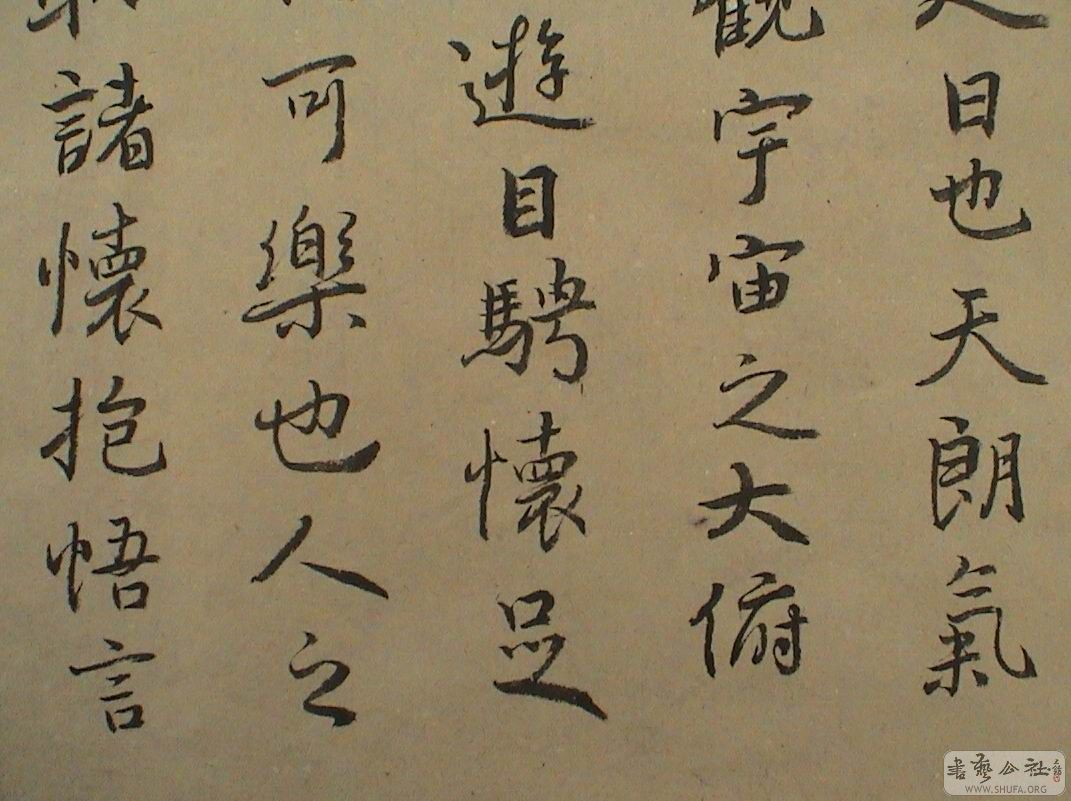 日也天朗氣
觀宇宙之大俯
遊目騁懷足
可樂也人之
諸懷抱悟言
書藝公社
WWW.SHUFA.ORG